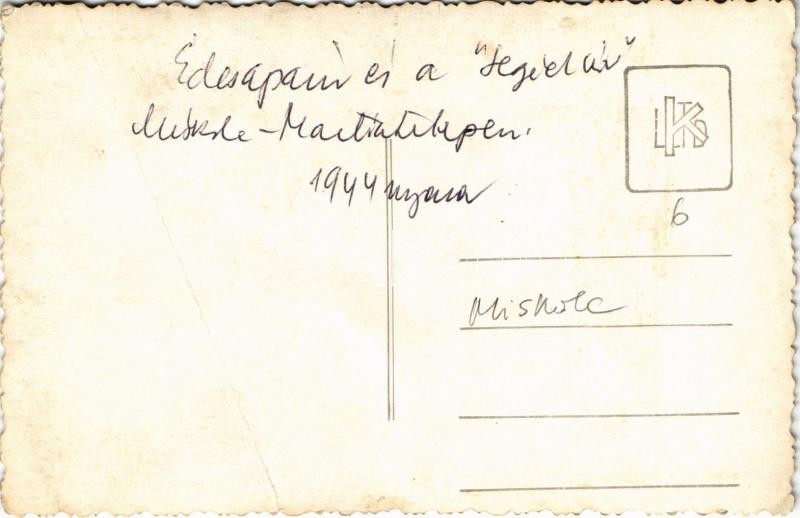 Édesapám és a "segédúr"
Miskolc-Martintelepen.
1944 nyara
6
Miskolc